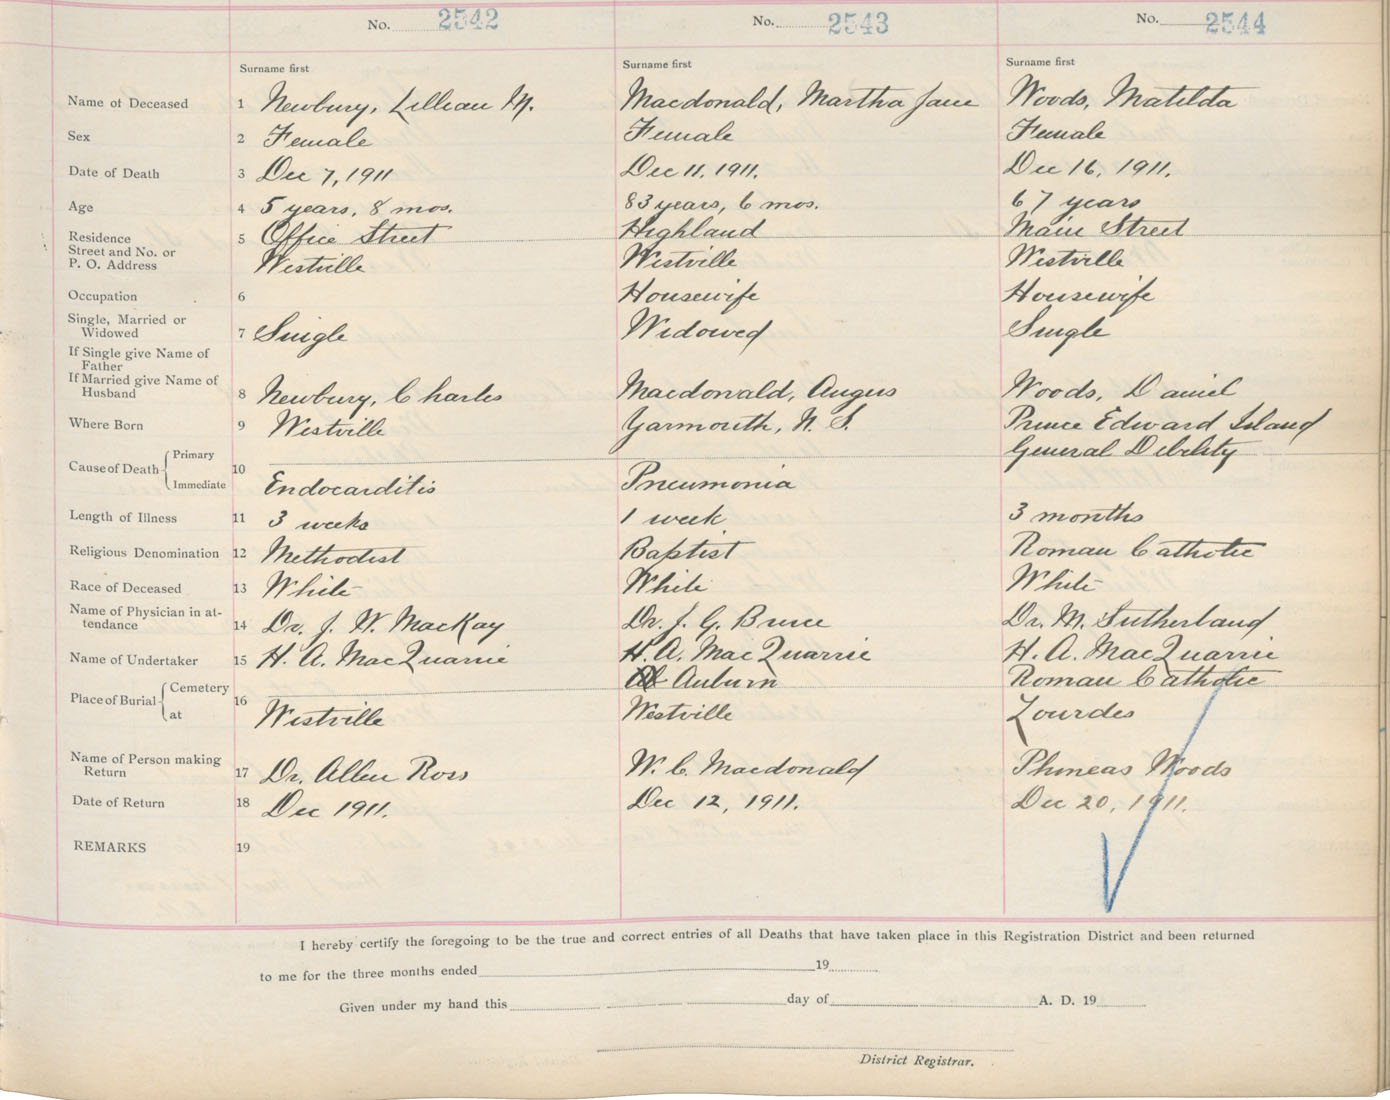 No. 2542 No. 2543 No. 2544
Surname first Surname first Surname first
Name of Deceased 1 Newbury, Lillian M. Macdonald, Martha Jane Woods, Matilda
Sex 2 Female Female Female
Date of Death 3 Dec 7, 1911 Dec 11, 1911. Dec 16, 1911.
Age 4 5 years, 8 mos. 83 years, 6 mos. 67 years
Residence 5 Office Street Highland Main Street
Street and No. or
P. O. Address Westville Westville Westville
Occupation 6 Housewife Housewife
Single, Married or
Widowed 7 Single Widowed Single
If Single give Name of
Father
If Married give Name of
Husband 8 Newbury, Charles Macdonald, Angus Woods, Daniel
Where Born 9 Westville Yarmouth, N. S. Prince Edward Island
Cause of Death Primary 10 General Debility
Immediate Endocarditis Pneumonia
Length of Illness 11 3 weeks 1 week 3 months
Religious Denomination 12 Methodist Baptist Roman Catholic
Race of Deceased 13 White White White
Name of Physician in at-
tendance 14 Dr. J. W. MacKay Dr. J. G. Bruce Dr. M. Sutherland
Name of Undertaker 15 H. A. MacQuarrie H. A. MacQuarrie H. A. MacQuarrie
Place of Burial Cemetery 16 Auburn Roman Catholic
at Westville Westville Lourdes
Name of Person making
Return 17 Dr. Allen Ross W. C. Macdonald Phineas Woods
Date of Return 18 Dec 1911. Dec 12, 1911. Dec 20, 1911.
REMARKS 19
I hereby certify the foregoing to be the true and correct entries of all Deaths that have taken place in this Registration District and been returned
to me for the three months ended 19
Given under my hand this day of A. D. 19
District Registrar.